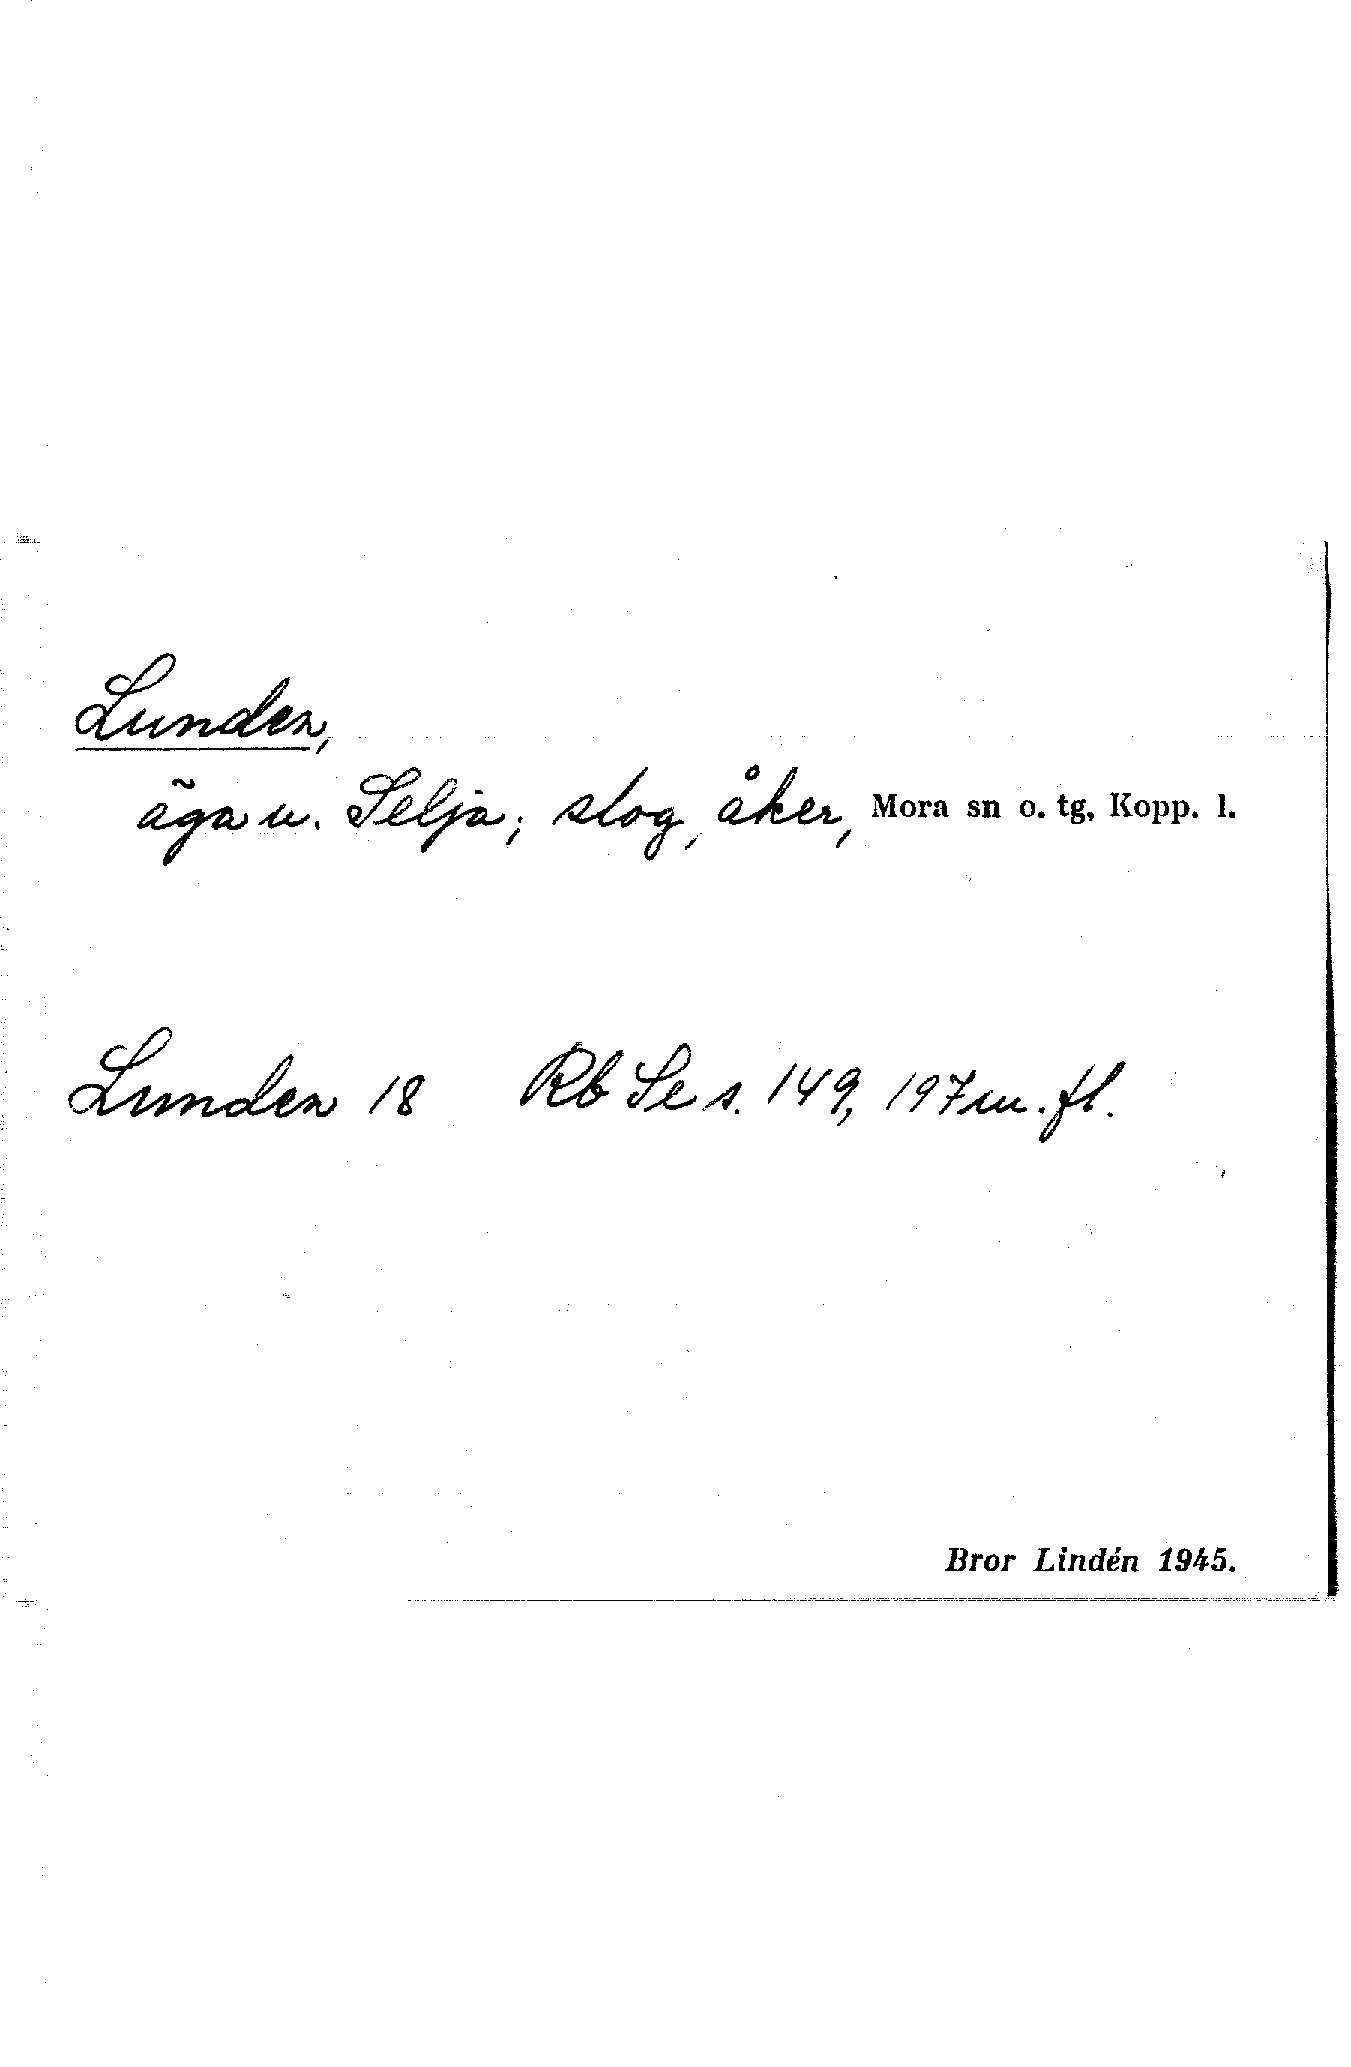 Lunden,
äga u. Selja; slog, åker, Mora sn o. tg, Kopp. l.
Lunden 18 Rb Se s. 149, 197 m. fl.
Bror Lindén 1945.